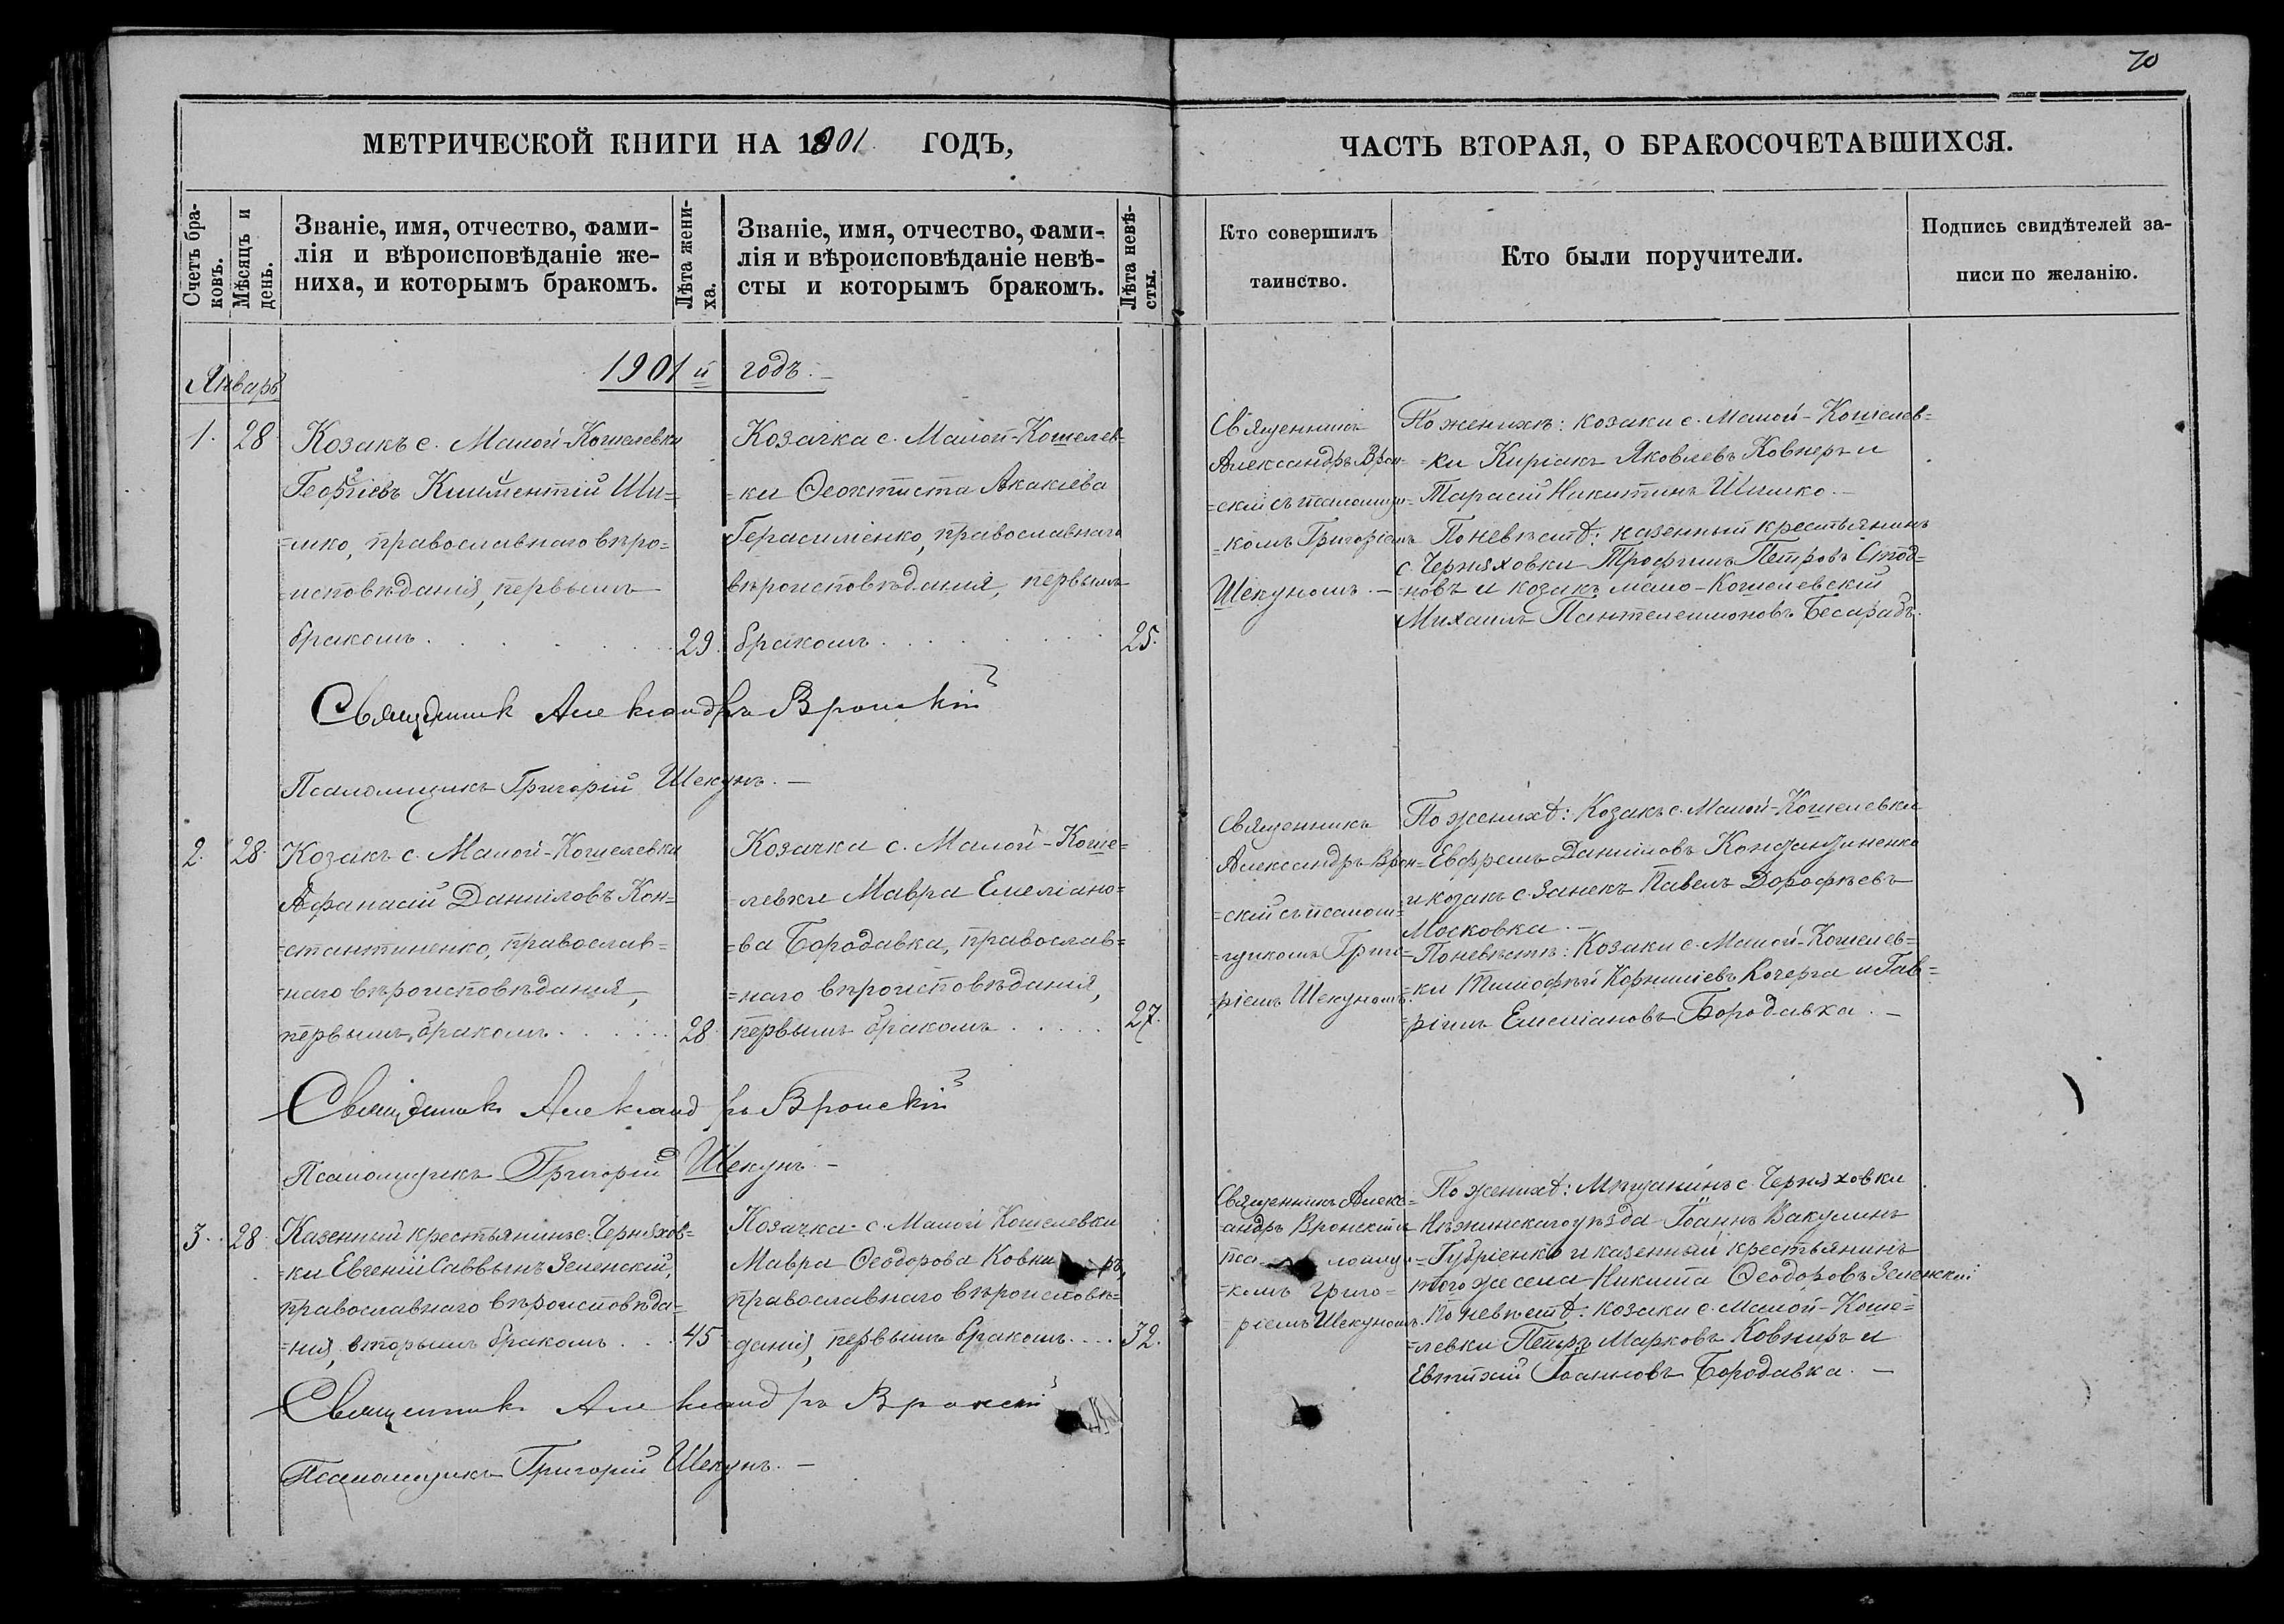 70
МЕТРИЧЕСКОЙ КНИГИ НА 1901 ГОДЪ,
ЧАСТЬ ВТОРАЯ, О БРАКОСОЧЕТАВШИХСЯ.
Счетъ бра-
ковъ.
Мѣсяцъ и
день.
Званіе, имя, отчество, фами-
лія и вѣроисповѣданіе же-
ниха, и которымъ бракомъ.
Лѣта жени-
ха.
Званіе, имя, отчество, фами-
лія и вѣроисповѣданіе невѣ-
сты и которымъ бракомъ.
Лѣта невѣ-
сты.
Кто совершилъ
таинство.
Кто были поручители.
Подпись свидѣтелей за-
писи по желанію.
1901 й годъ.
Январь
1. 28
Козакъ с. Малой-Кошелевки
Георгіевъ Климентій Ши=
=шко, православнаго вѣро=
=исповѣданія, первымъ
бракомъ . . . . . 29.
Козачка с. Малой-Кошелев-
=ки Ѳеоктиста Акакіева
Герасименко, православнаго
вѣроисповѣданія, первымъ
бракомъ . . . . . 25.
Священникъ
Александръ Врон-
=скій съ псаломщи=
=комъ Григоріемъ
Шекуномъ. –
По женихѣ: козаки с. Малой-Кошелев=
=ки Киріакъ Яковлевъ Ковнеръ и
Тарасій Никитинъ Шишко. –
По невѣстѣ: казенный крестьянинъ
с. Черняховки Трофимъ Петровъ
=новъ и козакъ мало-Кошелевскій
Михаилъ Пантелеимоновъ Бесарабъ.
Священник Александръ Вронскій
Псаломщикъ Григорій Шекунъ. –
2. 28.
Козакъ с. Малой-Кошелевки
Афанасій Даниловъ Кон=
=стантиненко, православ=
=наго вѣроисповѣданія,
первымъ бракомъ . . . . . 28
Козачка с. Малой-Коше=
левки Мавра Емеліано=
=ва Бородавка, православ=
=наго вѣроисповѣданія,
первымъ бракомъ . . . . . 27.
Священникъ
Александръ Врон=
=скій съ псалом=
=щикомъ Григо=
=ріемъ Шекуномъ.
По женихѣ: Козакъ с. Малой-Кошелевки
Ефремъ Даниловъ Константиненко
и козакъ с. Занекъ Павелъ Дорофѣевъ
Московка. –
По невѣстѣ: Козаки с. Малой-Кошелев=
=ки Тимофѣй Корниліевъ Кочерга и Гав=
=ріилъ Емеліановъ Бородавка. –
Священник Александръ Вронскій
Псаломщикъ Григорій Шекунъ. –
3. 28
Казенный крестьянинъ с. Черняхов=
=ки Евгеній Саввинъ Зеленскій,
православнаго вѣроисповѣда=
=нія, вторымъ бракомъ . . . 45
Козачка с. Малой Кошелевки
Мавра Ѳеодорова Ковни ръ,
православнаго вѣроисповѣ=
=данія, первымъ бракомъ . . . . 32.
Священникъ Алекс=
=андръ Вронскій съ
пса ломщи=
=комъ Григо=
=ріемъ Шекуномъ.
По женихѣ: Мѣщанинъ с. Черняховки
Нѣжинскаго уѣзда Іоаннъ Вакулинъ
Губріенко и казенный крестьянинъ
того же села Никита Ѳеодоровъ Зеленскій
По невѣстѣ: козаки с. Малой-Коше=
=левки Петръ Марковъ Ковниръ и
Евтихій Іоанновъ Бородавка. –
Священник Александръ Вронскій
Псаломщикъ Григорій Шекунъ. –